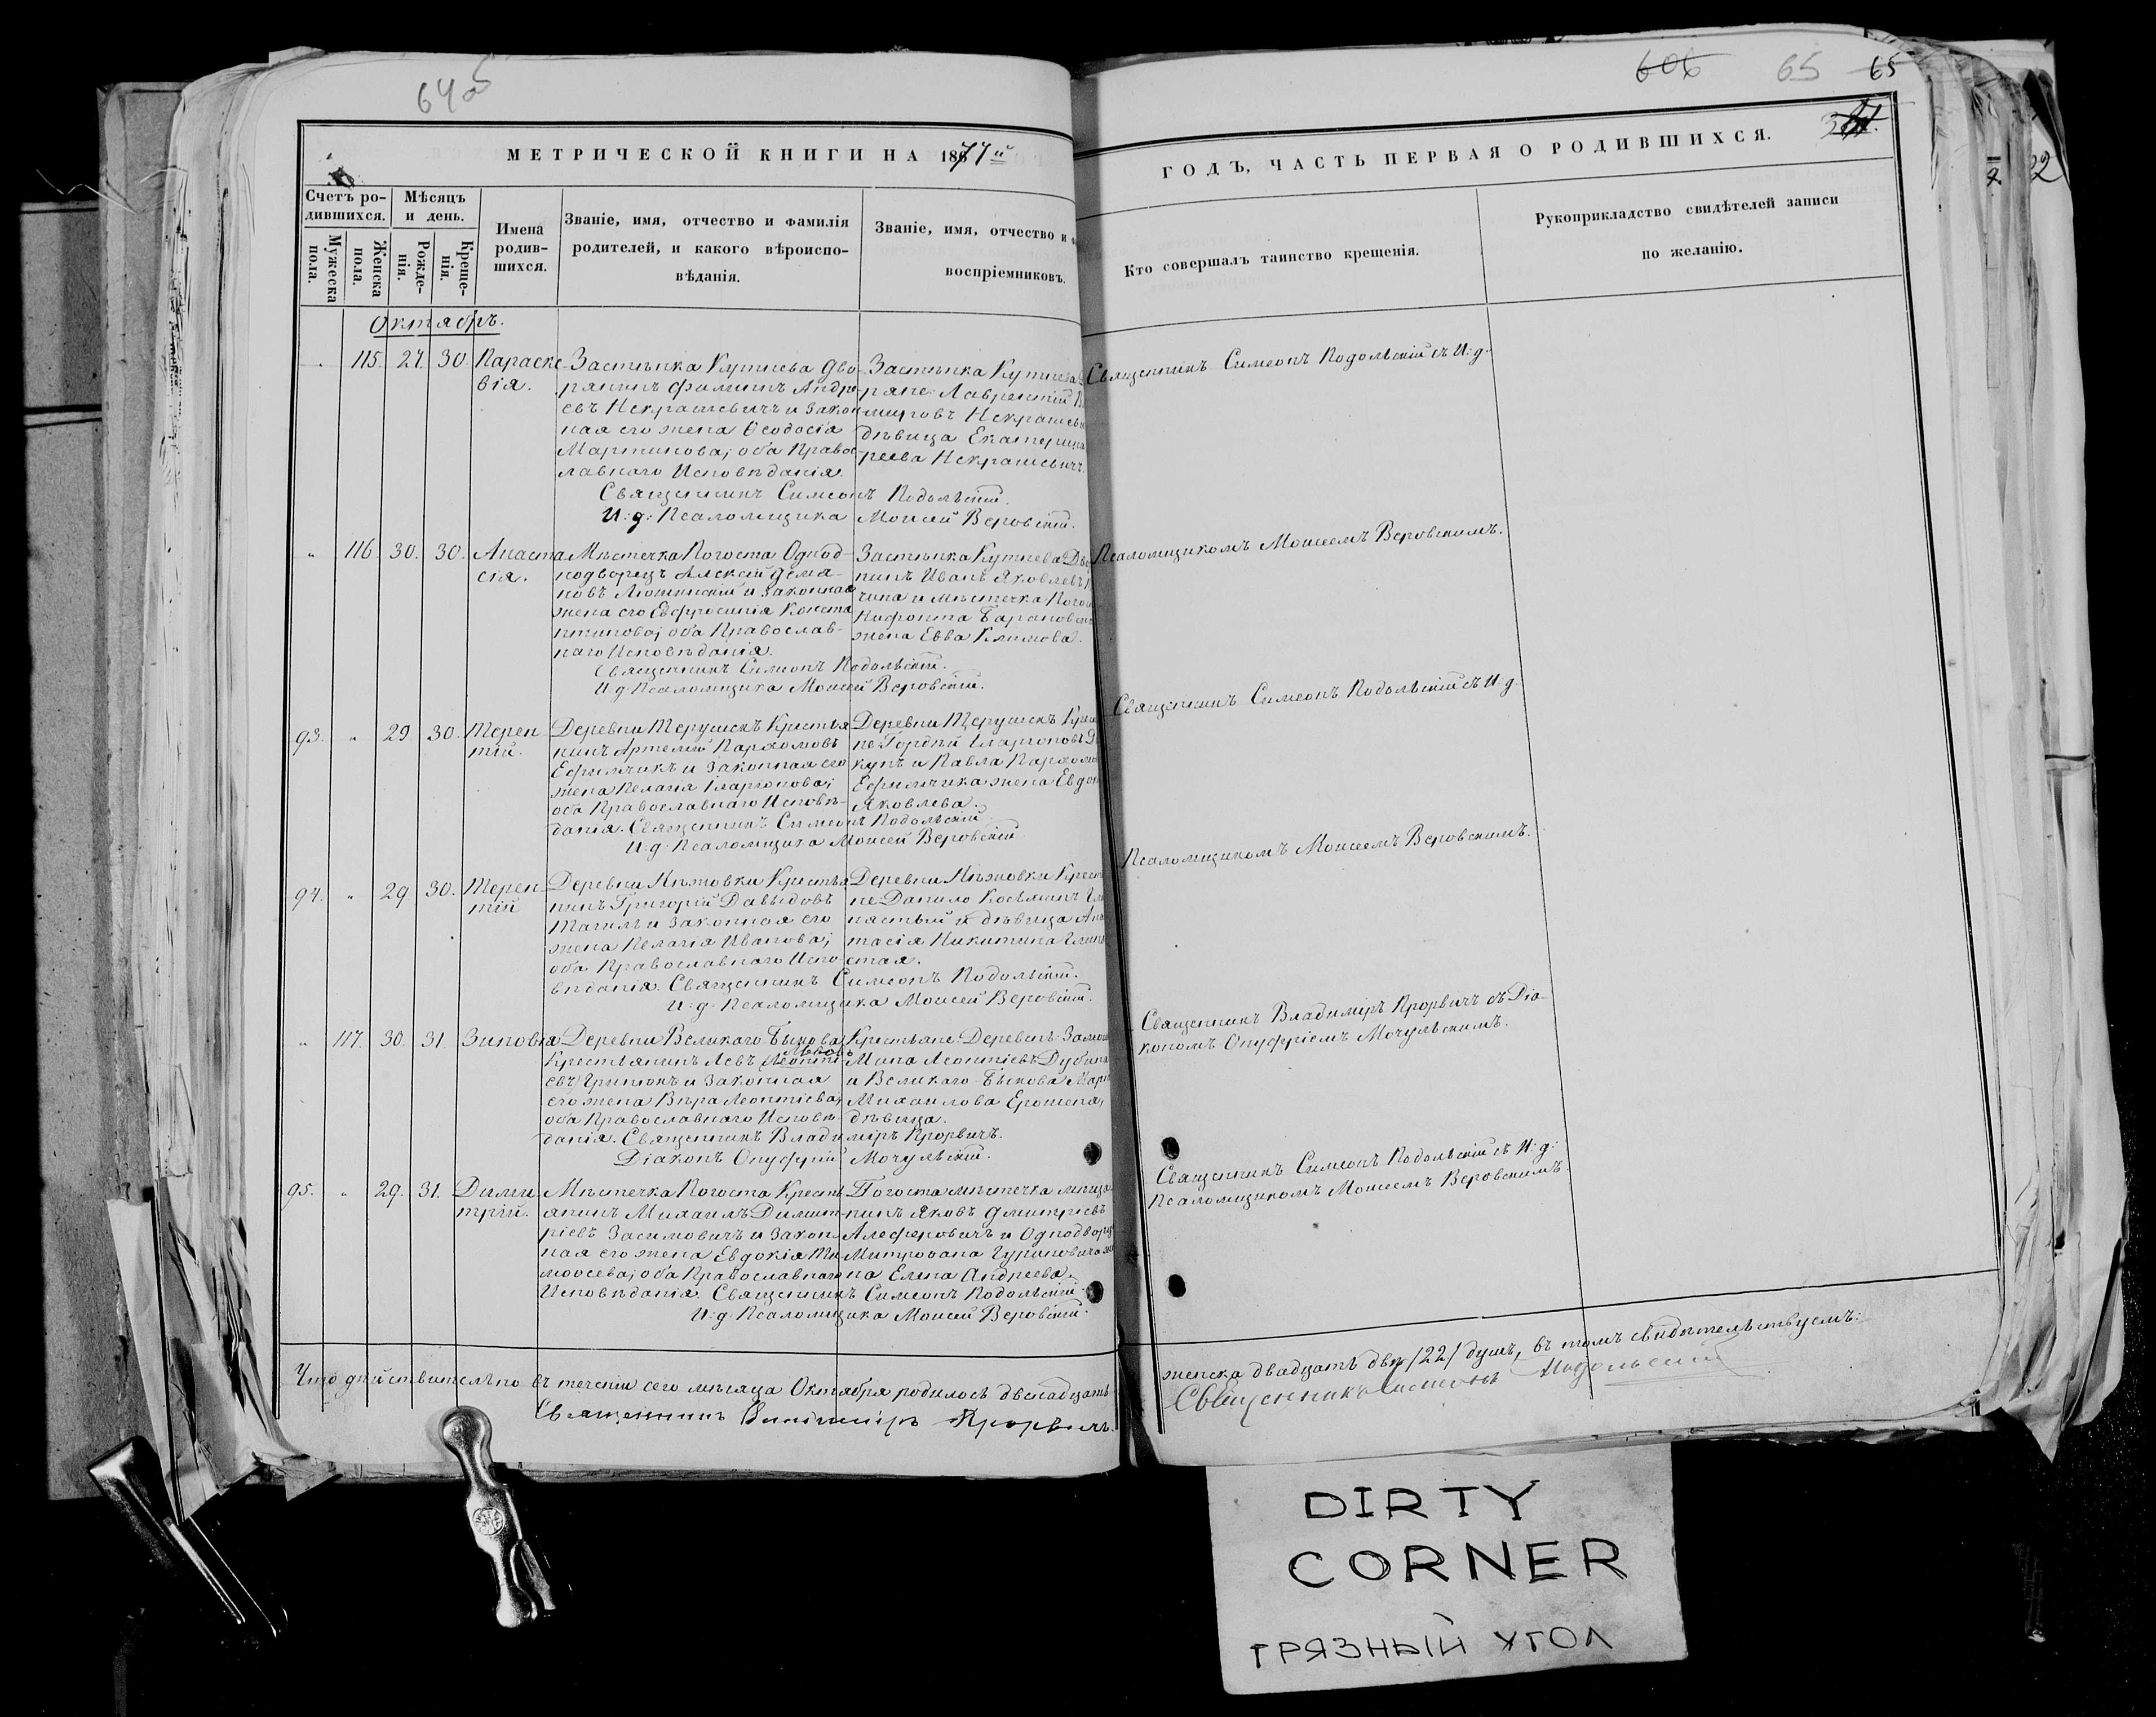 64 об
606 65 65
МЕТРИЧЕСКОЙ КНИГИ НА 1877й
ГОДЪ, ЧАСТЬ ПЕРВАЯ О РОДИВШИХСЯ.
Счетъ ро-
дившихся.
Мужеска
пола.
Женска
пола.
Мѣсяцъ
и день.
Рожде-
нія.
Креще-
нія.
Имена
родив-
шихся.
Званіе, имя, отчество и фамилія
родителей, и какого вѣроиспо-
вѣданія.
Званіе, имя, отчество и
воспріемниковъ.
Кто совершалъ таинство крещенія.
Рукоприкладство свидѣтелей записи
по желанію.
Октябрь.
115. 27. 30. Параске-
вія.
Застѣнка Кутнева Дво-
рянинъ Филипъ Андре-
евъ Некрашевичъ и закон-
ная его жена Ѳеодосія
Мартинова; оба Право-
славнаго Исповѣданія.
Застѣнка Кутнева
ряне: Лаврентій
мировъ Некрашев
дѣвица Екатерина
реева Некрашевичъ.
Священникъ Симеонъ Подольскій.
И: д: Псаломщика Моисей Веровскій.
Священникъ Симеонъ Подольскій съ И: д:
Псаломщикомъ Моисеемъ Веровскимъ.
" 116. 30. 30. Анаста
сія.
Мѣстечка Погоста Однод-
нодворецъ Алексей Демя-
новъ и Законная
жена его Евфросинія Конста
нтинова; оба Православ-
наго Исповѣданія.
Застѣнка Кутнева Дво
нинъ Иванъ Яковлевъ
чина и мѣстечка Пого
Нифонта Барановск
жена Евва Климова.
Священникъ Симеонъ Подольскій.
И: д: Псаломщика Моисей Веровскій.
93. " 29 30. Терен
тій.
Деревни Терушекъ Крестья
нинъ Артемій Пархомовъ
Ефимчикъ и Законная его
жена Пелагія Иларіонова;
оба Православнаго Исповѣ-
данія. Священникъ Симеонъ Подольскій
И: д: Псаломщика Моисей Веровскій
Деревни Терушекъ Крес
не Гордѣй Иларіоновъ
кунъ и Павла Пархом
Ефимчика жена Евдок
Яковлева.
Священникъ Симеонъ Подольскій съ И: д:
Псаломщикомъ Моисеемъ Веровскимъ.
94. " 29 30. Терен
тій
Деревни Мѣжовки Крестья
нинъ Григорій Давыдовъ
и Законная его
жена Пелагія Иванова;
оба Православнаго Испо
вѣданія. Священникъ Симеонъ Подольскій.
И: д: Псаломщика Моисей Веровскій.
Деревни Мѣжовки Крест
не Данило Косьминъ
и дѣвица Ана
тасія Никитина
стая.
" 117. 30. 31. Зиновія
Деревни Великаго-Быкова
Крестьянинъ Левъ Леонті-
евъ Гринюкъ и Законная
его жена Вѣра Леонтіева;
оба Православнаго Исповѣ-
данія. Священникъ Владиміръ Прорвичъ.
Діаконъ Онуфрій Мочульскій.
Крестьяне Деревень:
Мина Леонтіевъ
и Великаго-Быкова Мари
Михаилова Ерошена,
дѣвица.
Священникъ Владиміръ Прорвичъ съ Діа-
кономъ Онуфріемъ Мочульскимъ.
95. " 29. 31. Дими
трій.
Мѣстечка Погоста Крестья
янинъ Михаилъ Димит-
ріевъ Засимовичъ и Закон-
ная его жена Евдокія Ти-
моѳеева; оба Православнаго
Исповѣданія. Священникъ Симеонъ Подольскій.
И: д: Псаломщика Моисей Веровскій.
Погоста мѣстечка мѣща
нинъ Яковъ Дмитріевъ
Алеферовичъ и Однодворц
Митрофана Гуриновича же
на Елена Андреева.
Священникъ Симеонъ Подольскій съ И: д:
Псаломщикомъ Моисеемъ Веровскимъ.
Что дѣйствительно въ теченіи сего мѣсяца Октября родилось двенадцать
женска двадцать двѣ /22/ душъ, въ томъ свидѣтельствуемъ:
Священникъ Владиміръ Прорвичъ.
Священникъ Симеонъ Подольскій
DIRTY
CORNER
ГРЯЗНЫЙ УГОЛ